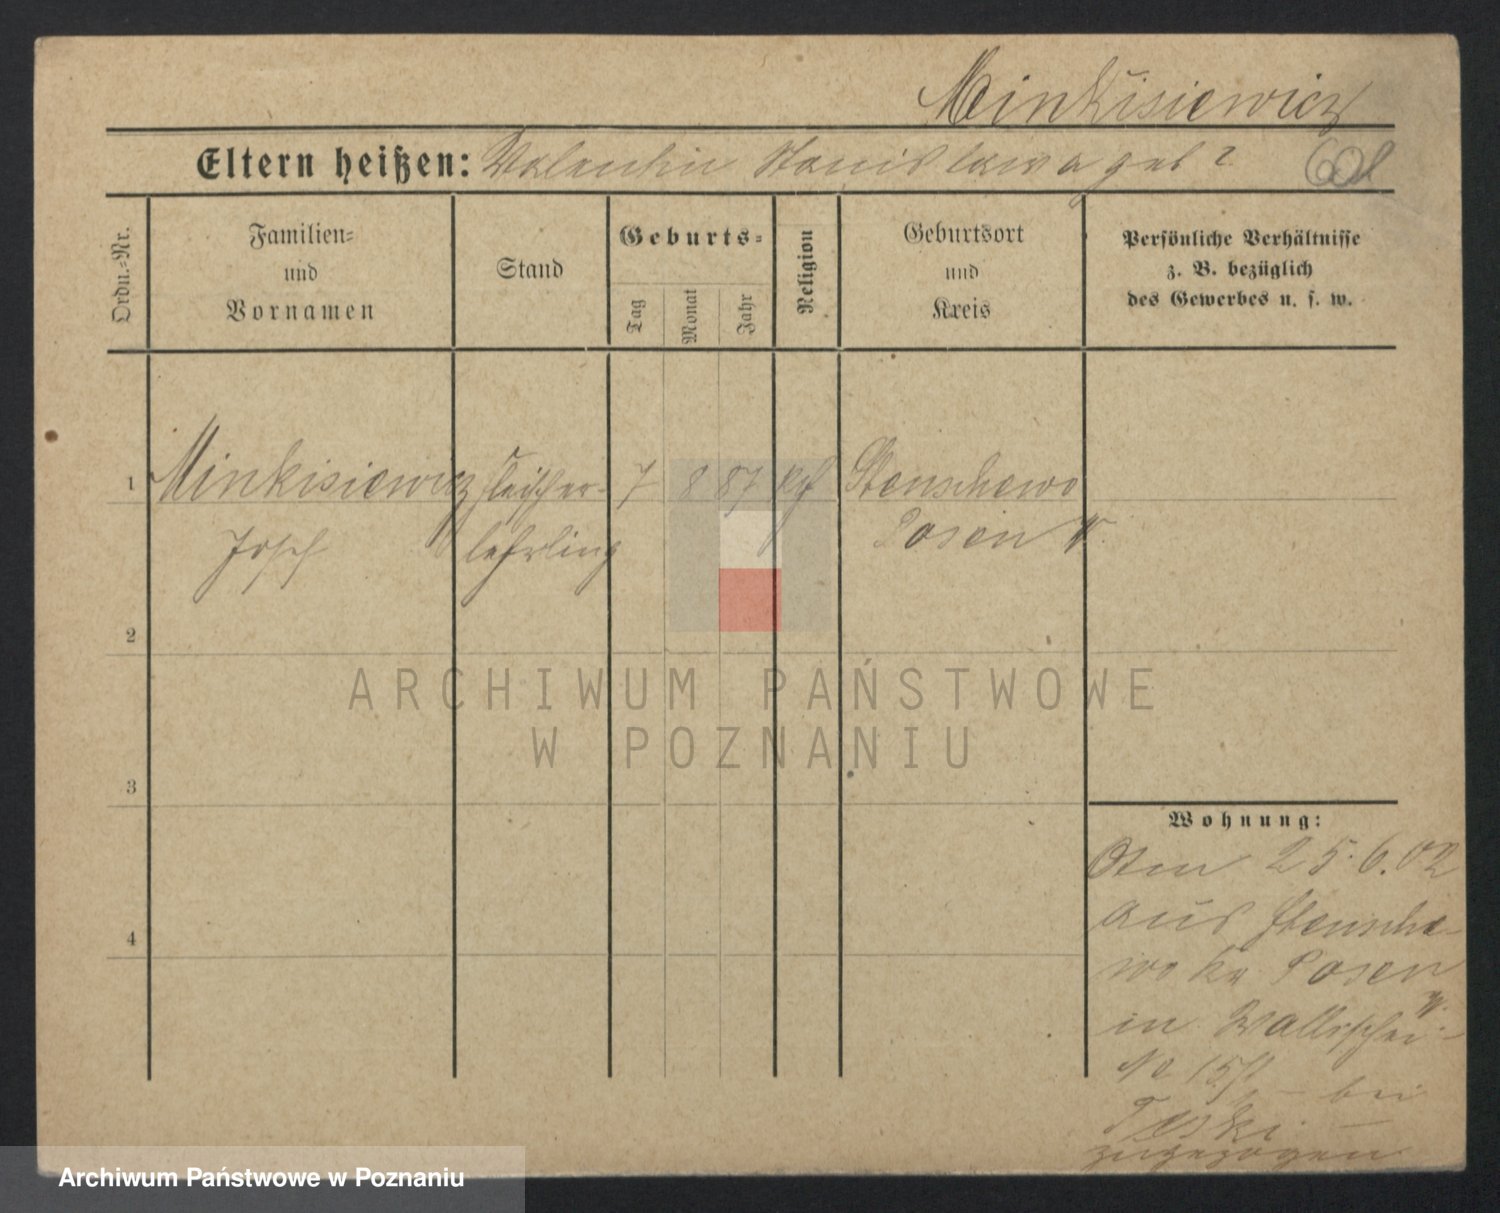 Minkisiewicz
Eltern heißen: Valentin Stanislawa geb ?
Ordn.-Nr.
Familien-
und
Vornamen
Stand
Geburts-
Tag
Monat
Jahr
Religion
Geburtsort
und
Kreis
Persönliche Verhältnisse
z. B. bezüglich
des Gewerbes u. s. w.
1 Minkisiewicz Fleischer- 7 8 87 kth Stenschewo
Josef lehrling Posen W.
2
3
4
Wohnung:
Am 25.6.02
aus Stensche-
wo Kr. Posen
W.
in Wallischei
No 15/ - bei
zugezogen
ARCHIWUM PAŃSTWOWE
W POZNANIU
Archiwum Państwowe w Poznaniu